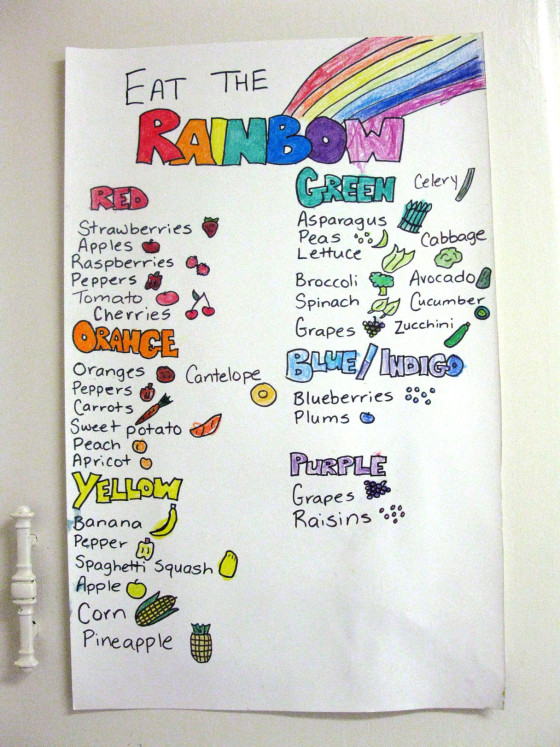 EAT THE
RAINBOW
RED
Strawberries
Apples
Raspberries
Peppers
Tomato
Cherries
ORANGE
Oranges
Cantelope
Peppers
Carrots
Sweet potato
Peach
Apricot
YELLOW
Banana
Pepper
Spaghetti Squash
Apple
Corn
Pineapple
GREEN
Celery
Asparagus
Peas
Cabbage
Lettuce
Broccoli
Avocado
Spinach
Cucumber
Grapes
Zucchini
BLUE/INDIGO
Blueberries
Plums
PURPLE
Grapes
Raisins